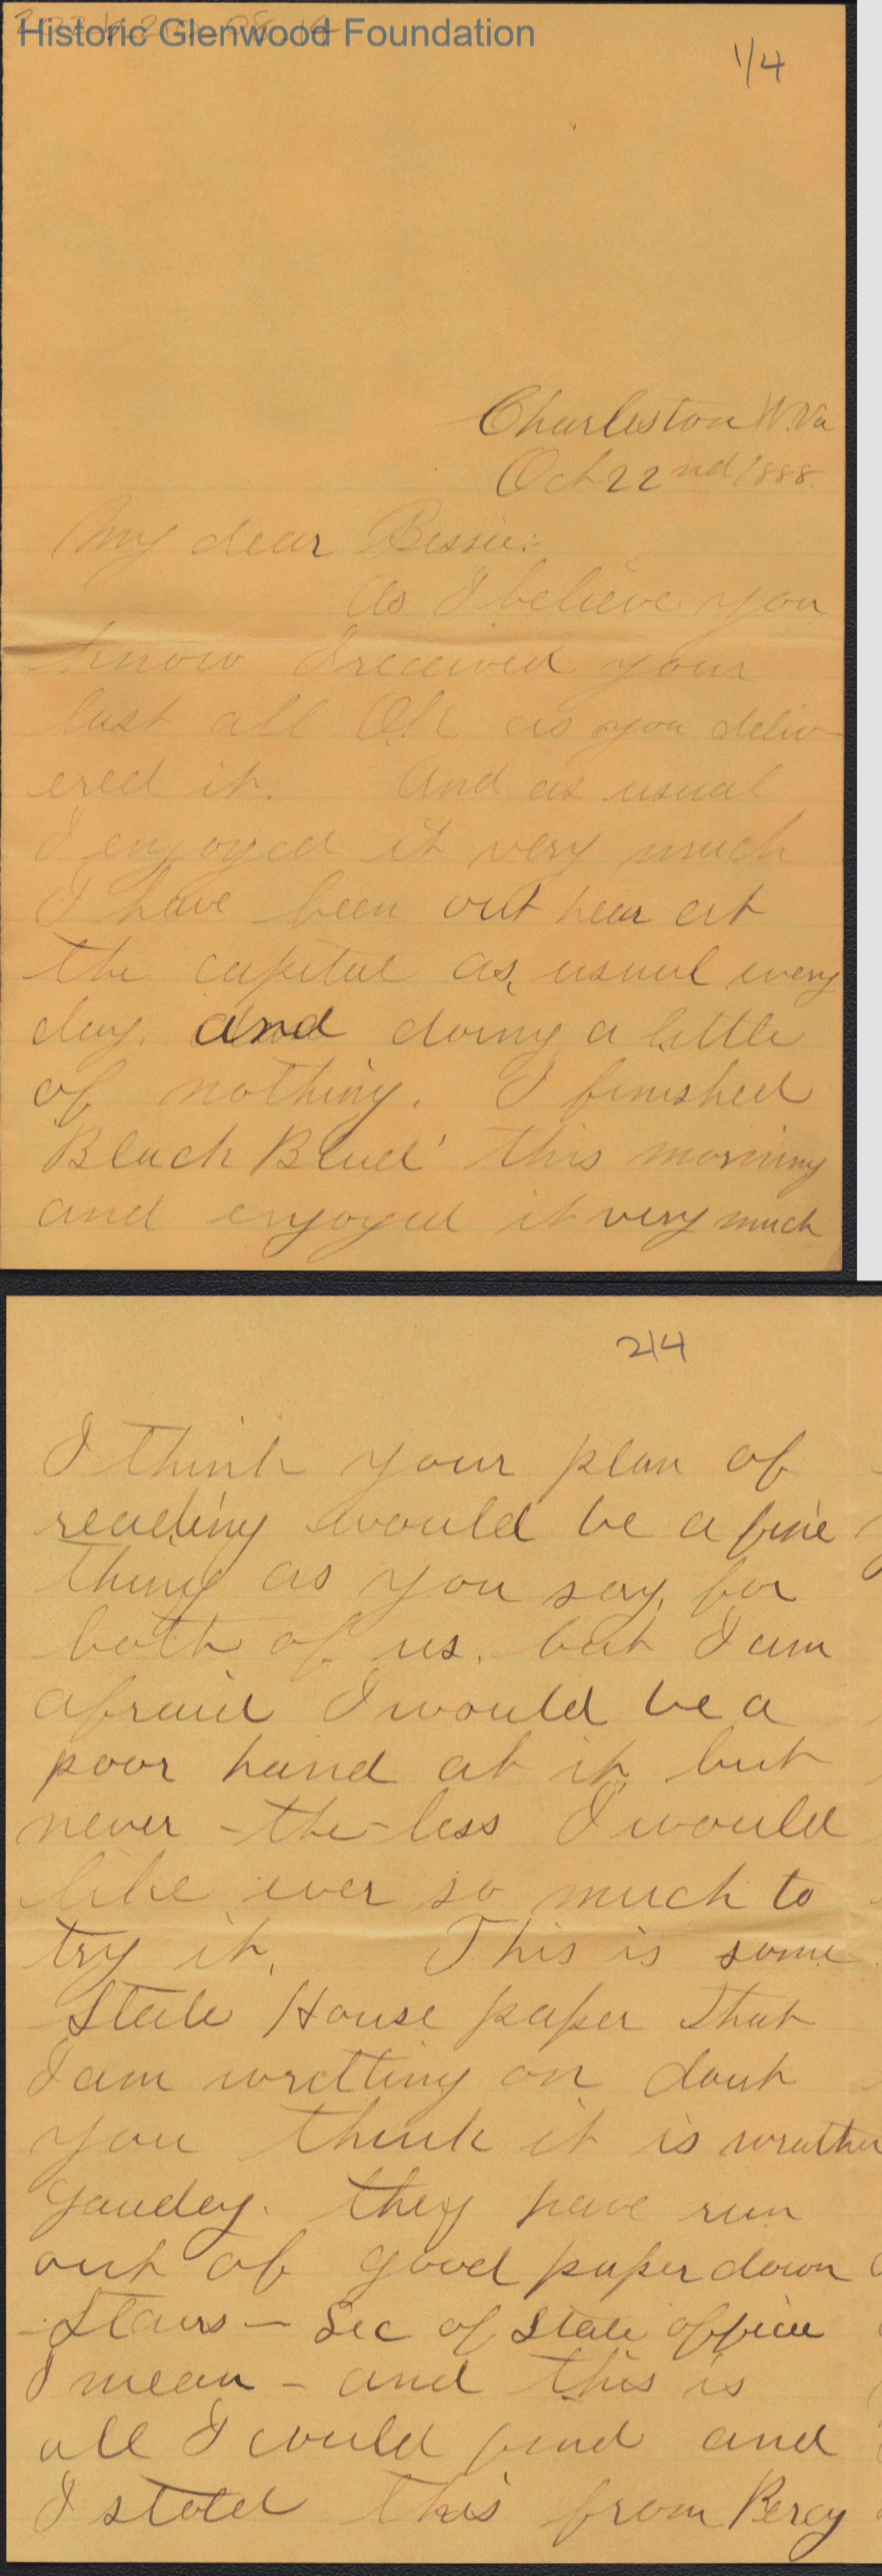 Historic Glenwood Foundation
1/4
Charleston W.Va
Oct 22nd 1888.
My dear Bessie:
As I believe you
know I received your
last all O.K. as you deliv-
ered it. And as usual
I enjoyed it very much
I have been out hear at
the capital as usual every
day. and doing a little
of nothing. I finished
'Black Blud' this morning
and enjoyed it very much
2/4
I think your plan of
reading would be a fine
thing as you say, for
both of us, but I am
afraid I would be a
poor hand at it but
never-the-less I would
like ever so much to
try it. This is some
State House paper that
I am writting on dont
you think it is wrather
gaudey. they have run
out of good paper down
-Stairs- Sec of State office
I mean - and this is
all I could find and
I stoled this from Percy